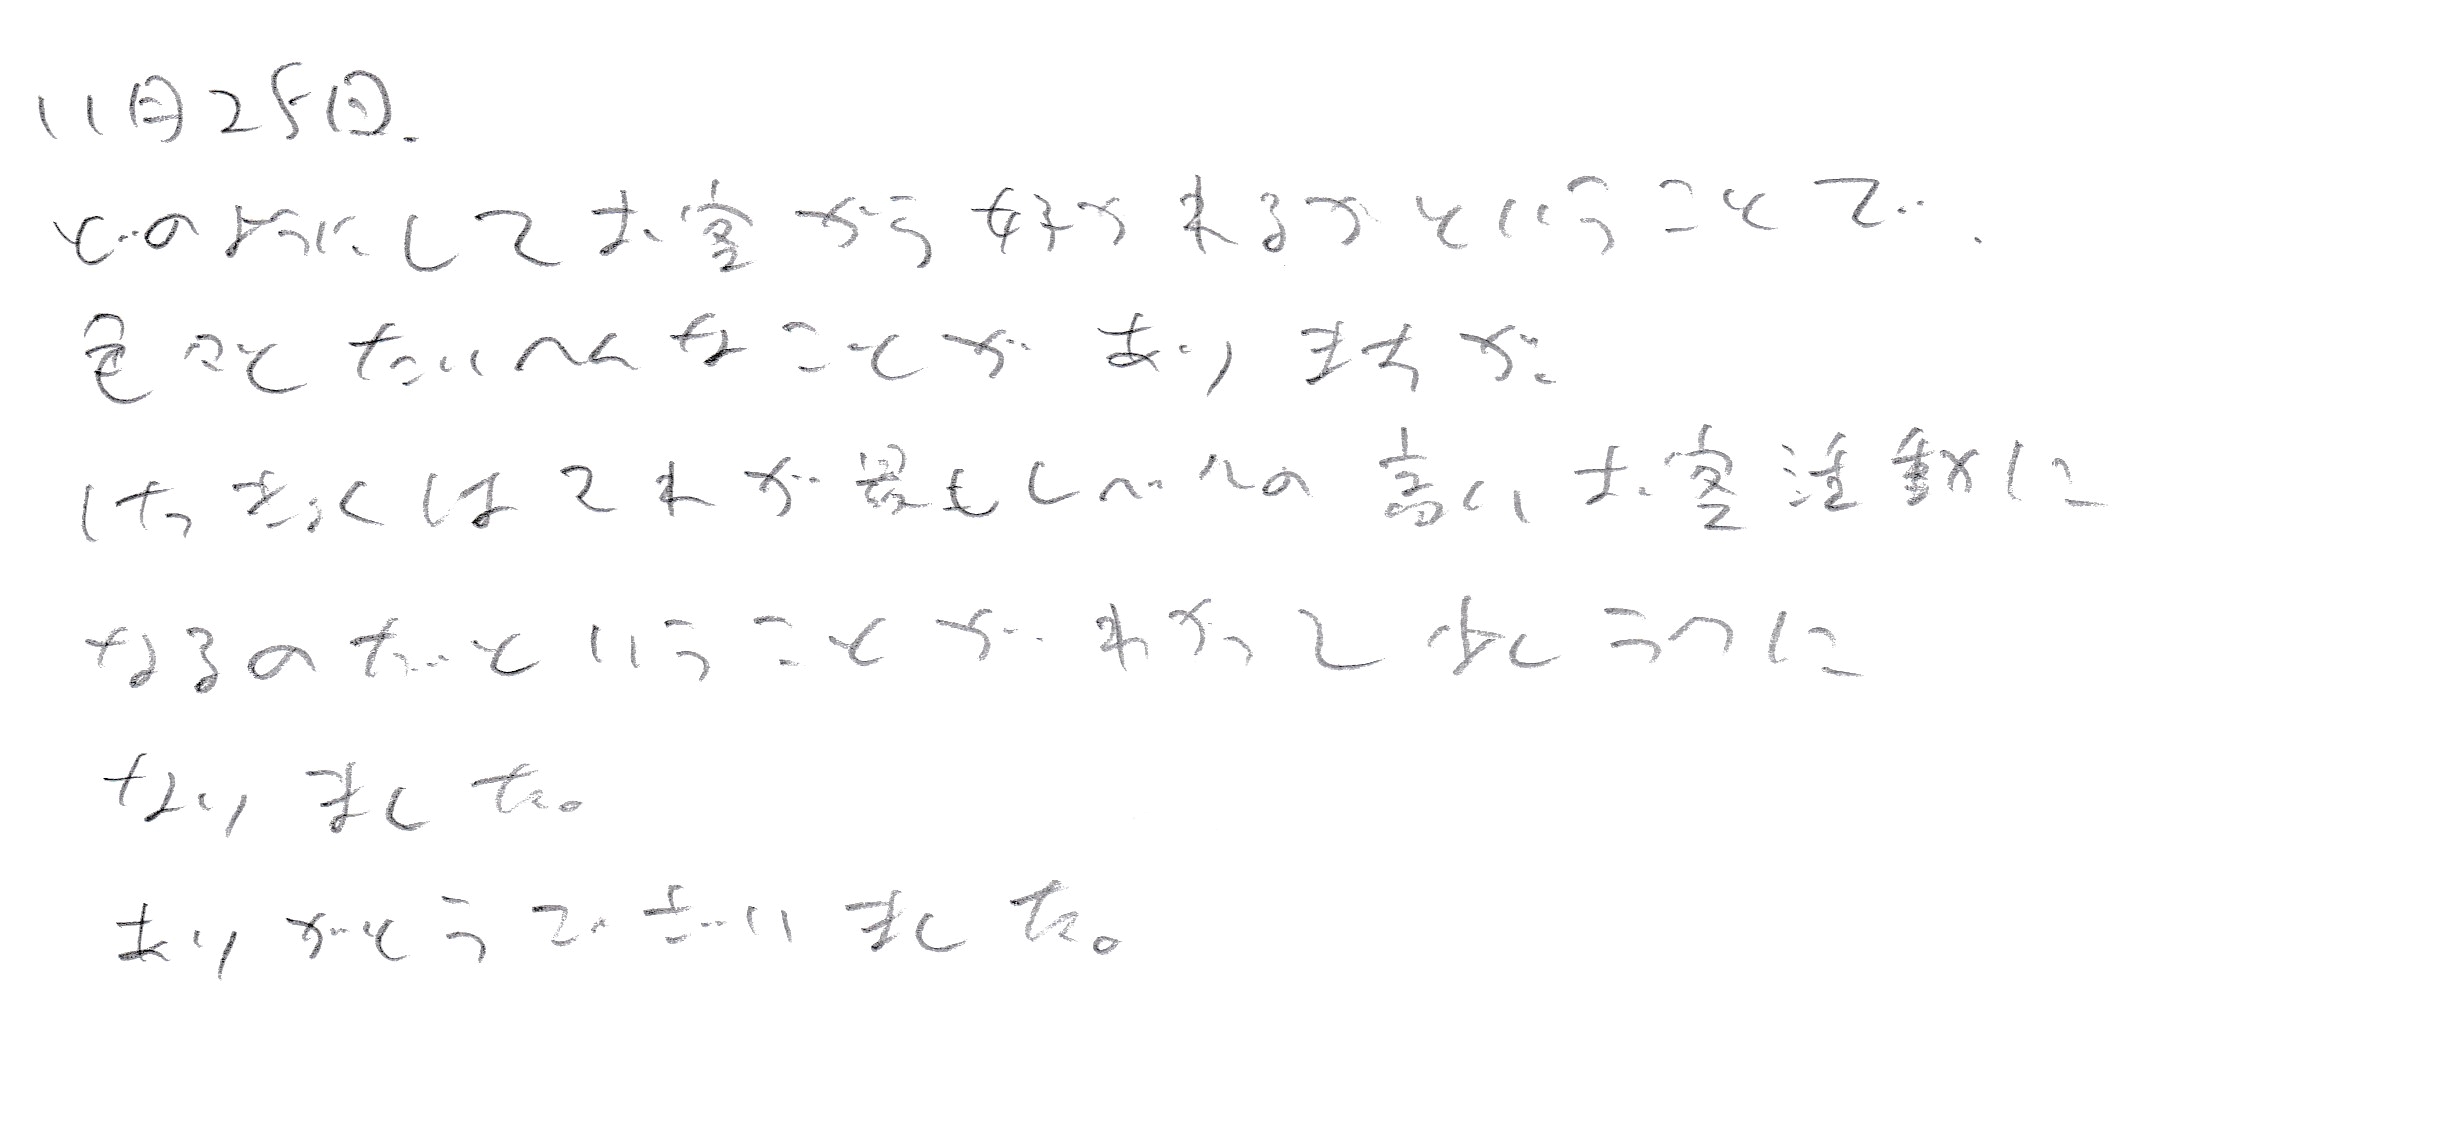 11月25日.
どのようにしてお客から好かれるかということで.
色々とたいへんなことがありますが、
けっきょくはそれが最もレベルの高いお客活動に
なるのだということがわかって少しうつに
なりました。
ありがとうございました。